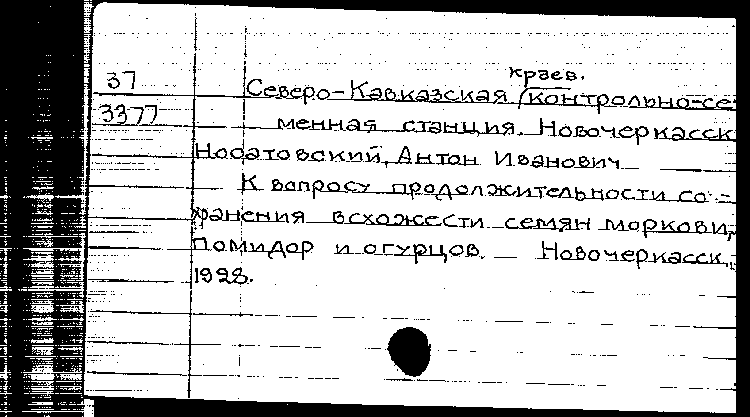 краев.
37
Северо-Кавказская /контрольно-се-
3377
менная станция. Новочеркасск
Носатовский, Антон Иванович
К вопросу продолжительности со-
хранения всхожести семян моркови,
помидор и огурцов. — Новочеркасск,
1928.